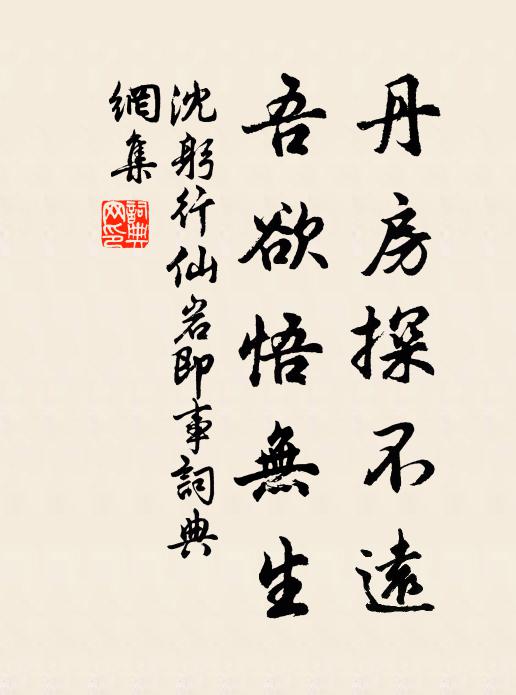 丹房探不遠
吾欲悟無生
沈躬行仙岩即事詞典
網集
詞典
网印